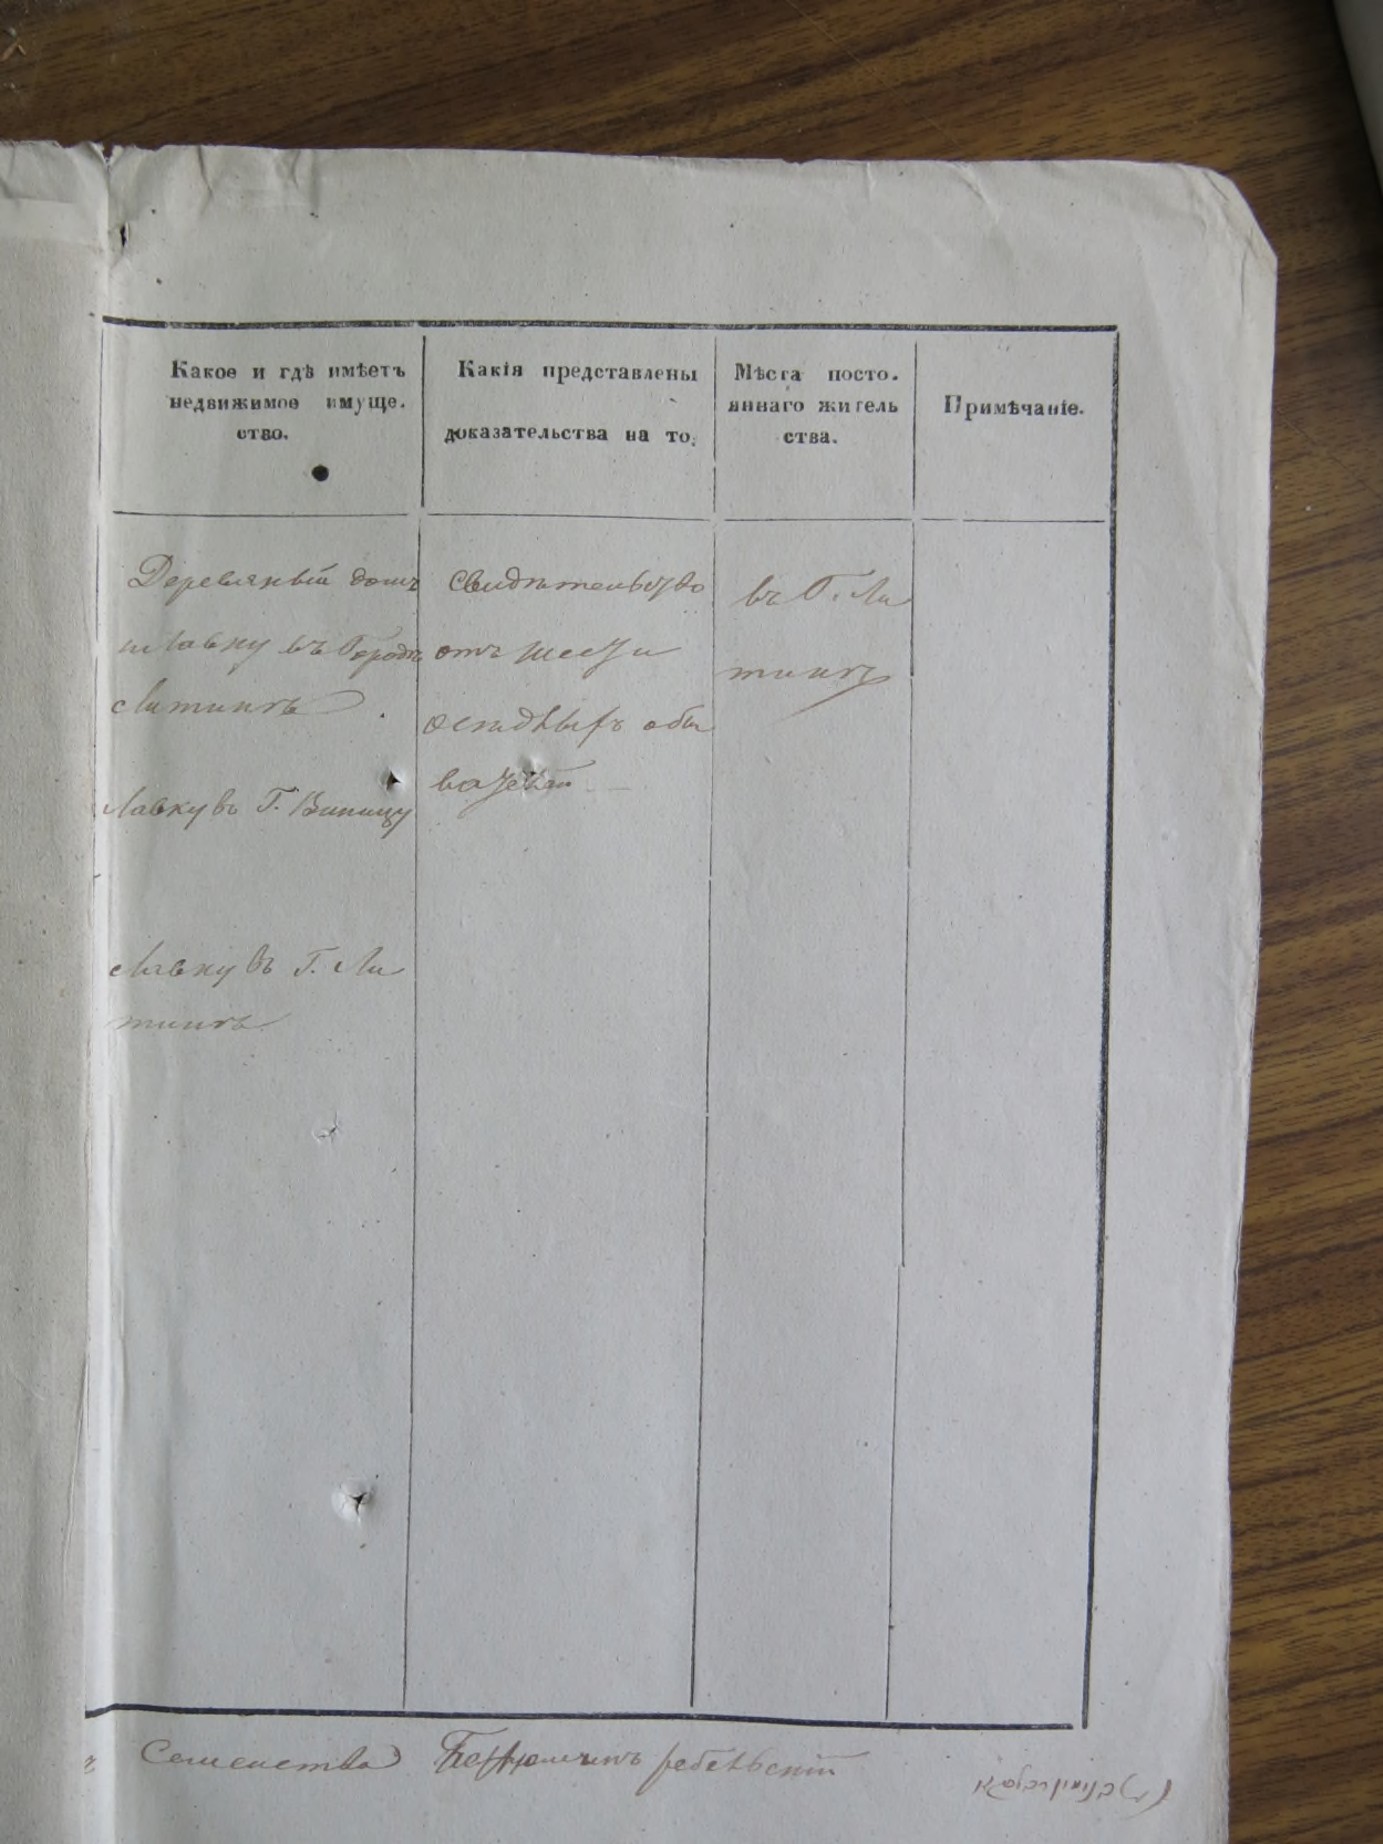 Какое и гдѣ имѣетъ
недвижимое имуще.
ство.
Какія представлены
доказательства на то.
Мѣста посто.
яннаго житель
ства.
Примѣчаніе.
Деревяный домъ
и лавку въ Городѣ
Литинѣ
Лавку въ Г. Виницу
Лавку въ Г. Ли
тинѣ
Свидѣтельство
отъ шести
осѣдлыхъ обы
вателей
въ Г. Ли
тинѣ
Семейства